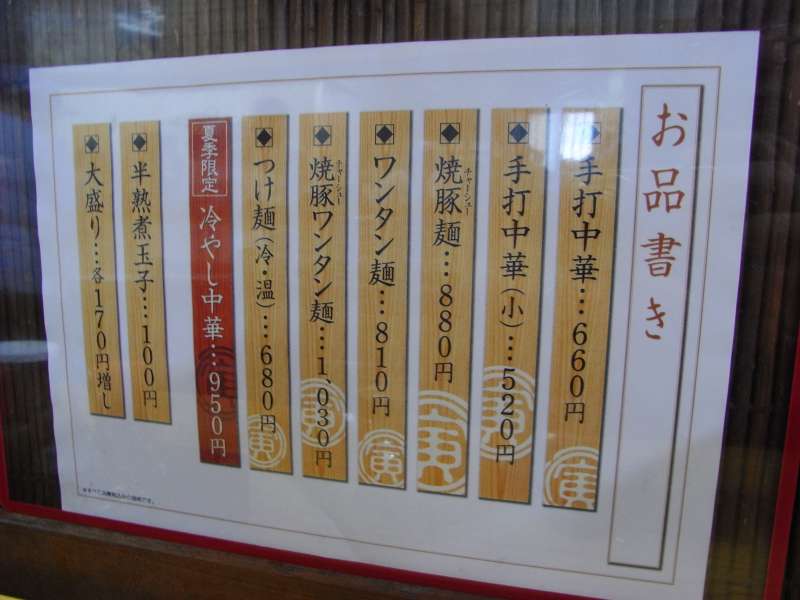 お品書き
手打中華…660円
手打中華(小)…520円
チャーシュー
焼豚麺…880円
ワンタン麺…810円
チャーシュー
焼豚ワンタン麺…1,030円
つけ麺(冷・温)…680円
夏季限定
冷やし中華…950円
半熟煮玉子…100円
大盛り…各170円増し
寅
寅
寅
寅
寅
寅
寅